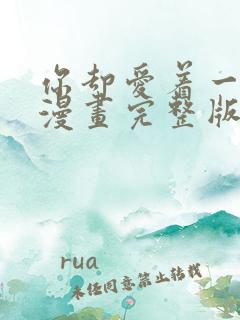 你却愛着一
漫畫完整版
rua
未经同意禁止转载